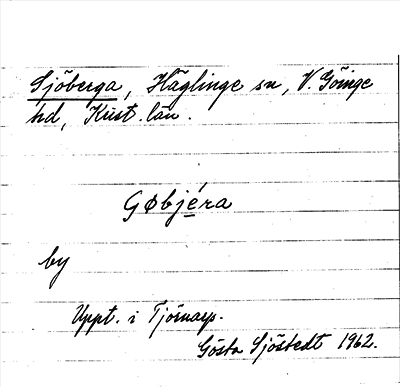 Sjöberga, Häglinge sn, V. Göinge
hd, Krist. län.
Gøbjéra
by
Uppt. i Tjörnarp.
Gösta Sjöstedt 1962.